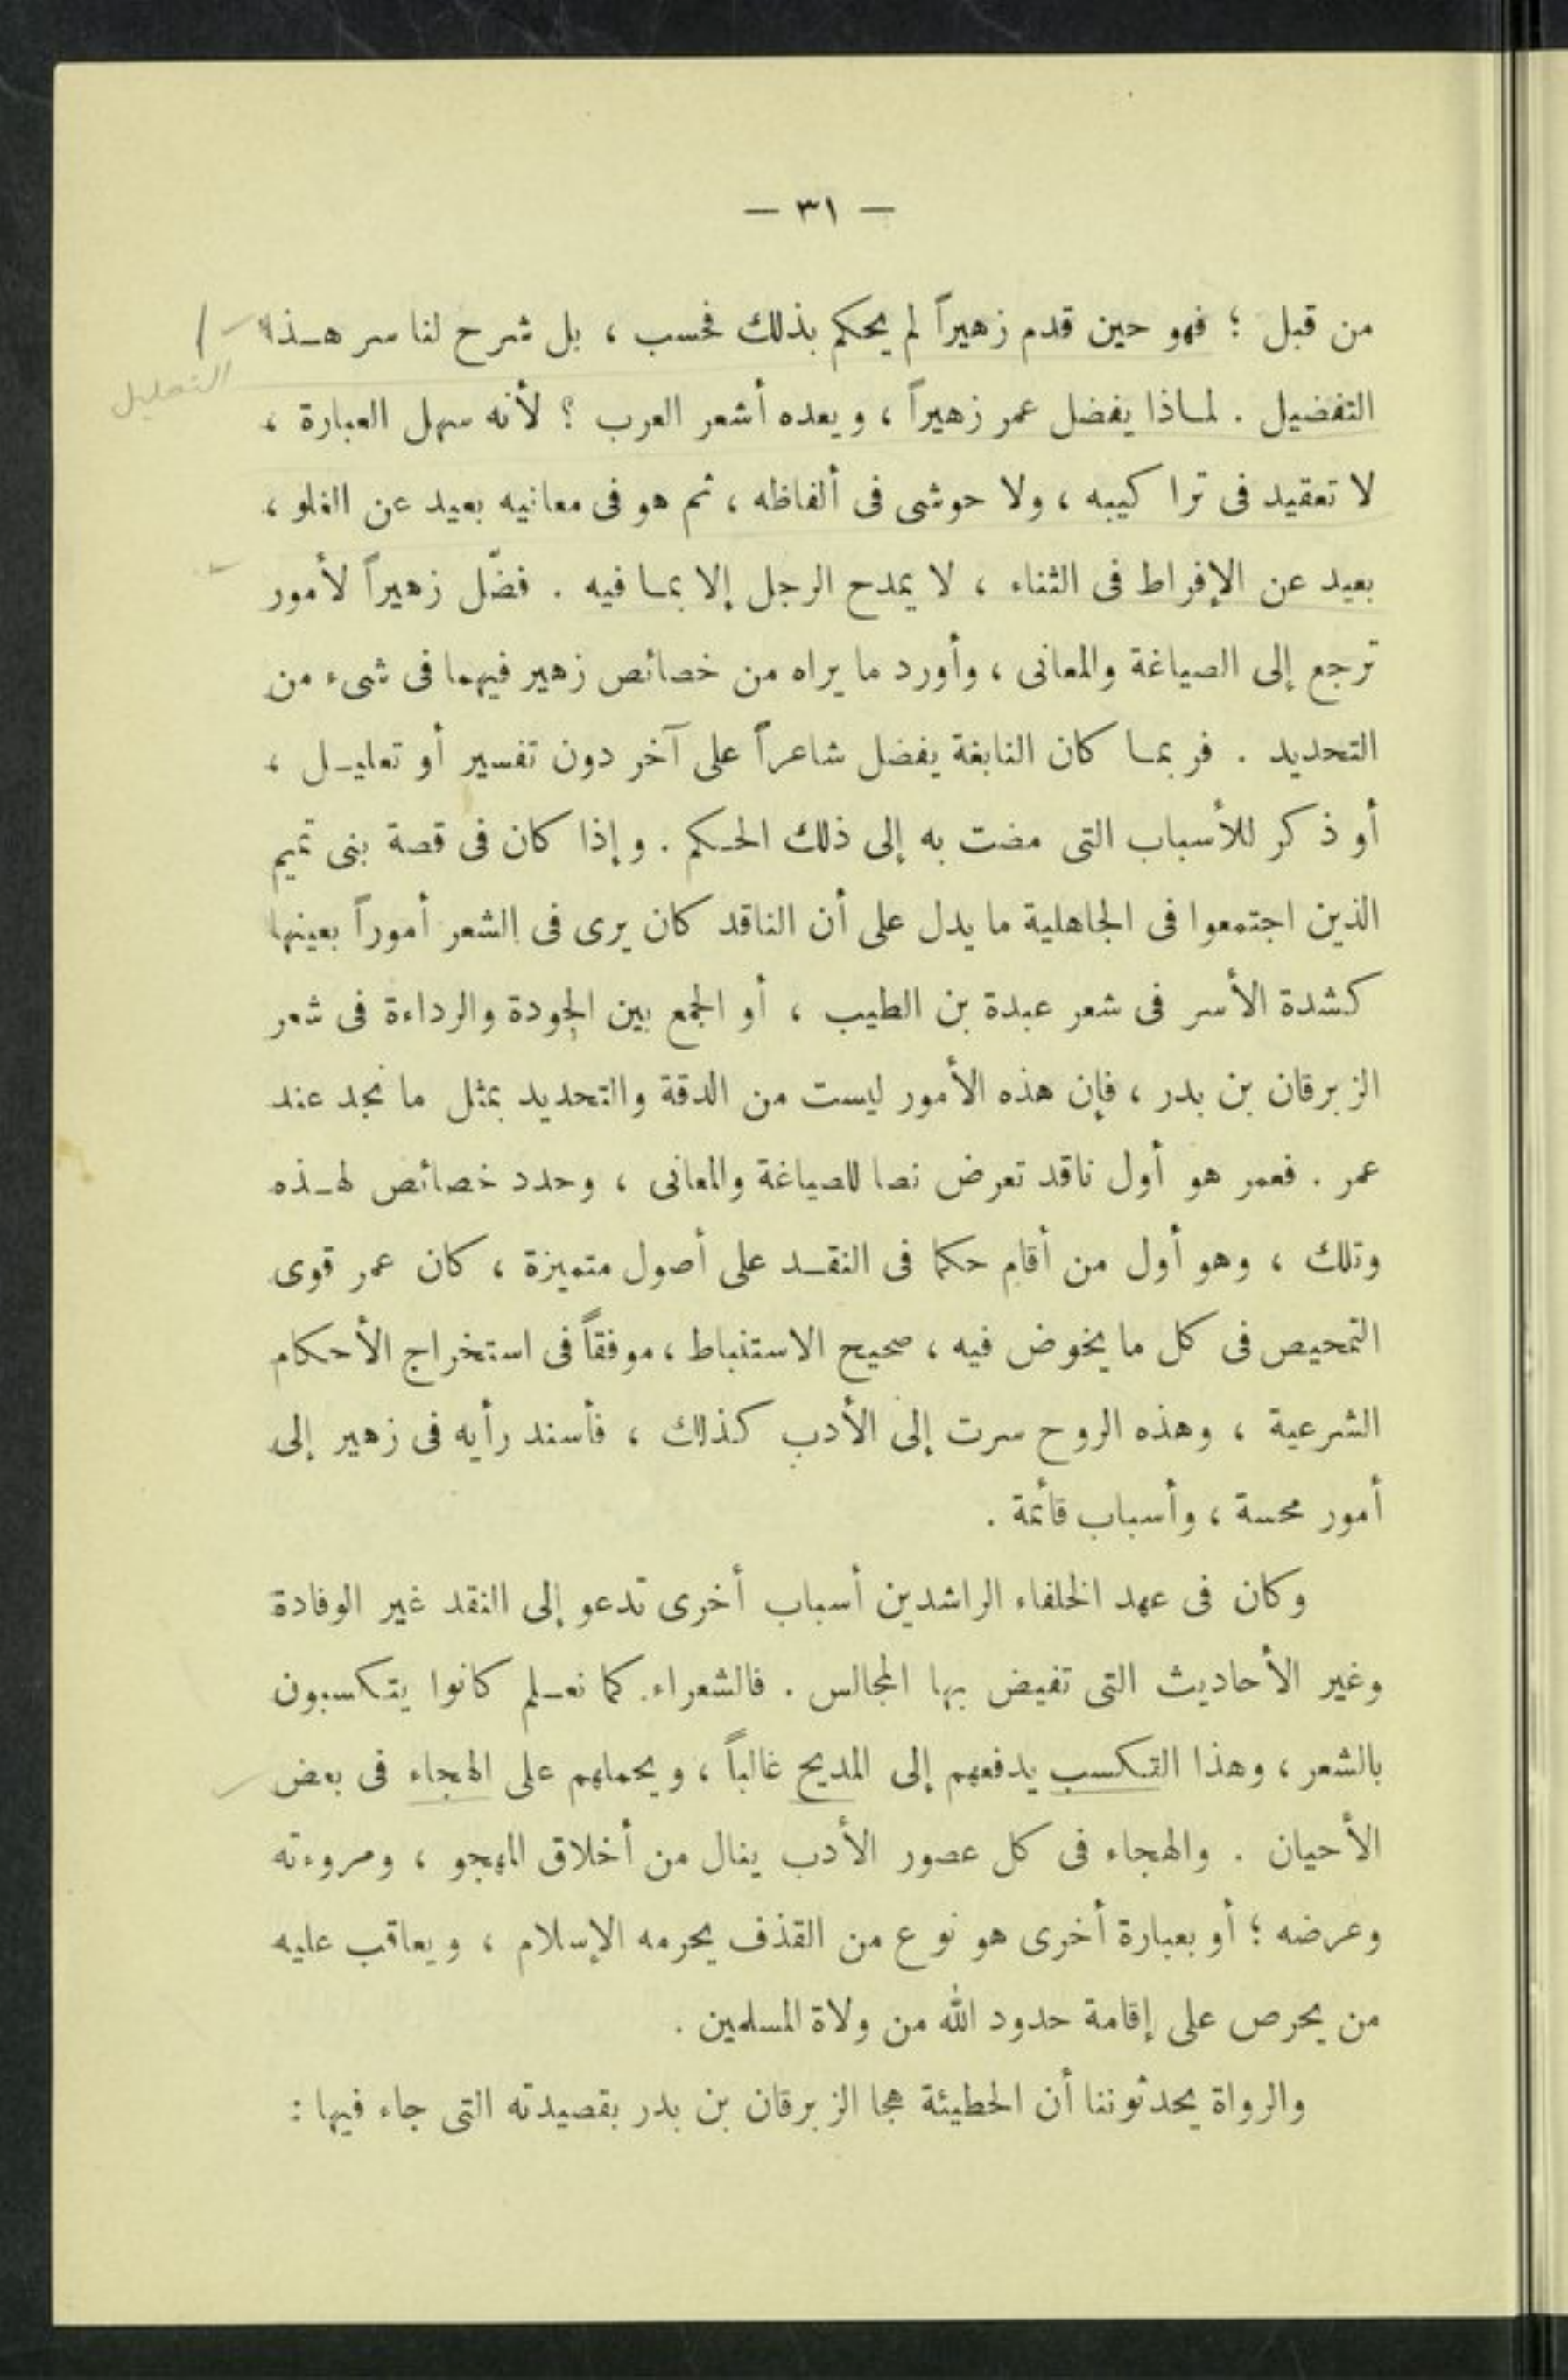 — ٣١ —
من قبل ؛ فهو حين قدم زهيراً لم يحكم بذلك فحسب ، بل شرح لنا سر هـذا
التعليل
التفضيل . لمـاذا يفضل عمر زهيراً ، ويعده أشعر العرب ؟ لأنه سهل العبارة ،
لا تعقيد فى تراكيبه ، ولا حوشى فى ألفاظه ، ثم هو فى معانيه بعيد عن الغلو ،
بعيد عن الإفراط فى الثناء ، لا يمدح الرجل إلا بمـا فيه . فضّل زهيراً لأمور
ترجع إلى الصياغة والمعانى ، وأورد ما يراه من خصائص زهير فيهما فى شىء من
التحديد . فربمـا كان النابغة يفضل شاعراً على آخر دون تفسير أو تعليـل ،
أو ذكر للأسباب التى مضت به إلى ذلك الحـكم . وإذا كان فى قصة بنى تميم
الذين اجتمعوا فى الجاهلية ما يدل على أن الناقد كان يرى فى الشعر أموراً بعينها
كشدة الأسر فى شعر عبدة بن الطيب ، أو الجمع بين الجودة والرداءة فى شعر
الزبرقان بن بدر ، فإن هذه الأمور ليست من الدقة والتحديد بمثل ما نجد عند
عمر . فعمر هو أول ناقد تعرض نصا للصياغة والمعانى ، وحدد خصائص لهـذه
وتلك ، وهو أول من أقام حكما فى النقـد على أصول متميزة ، كان عمر قوى
التمحيص فى كل ما يخوض فيه ، صحيح الاستنباط ، موفقاً فى استخراج الأحكام
الشرعية ، وهذه الروح سرت إلى الأدب كذلك ، فأسند رأيه فى زهير إلى
أمور محسة ، وأسباب قائمة .
وكان فى عهد الخلفاء الراشدين أسباب أخرى تدعو إلى النقد غير الوفادة
وغير الأحاديث التى تفيض بها المجالس . فالشعراء كما نعـلم كانوا يتكسبون
بالشعر ، وهذا التكسب يدفعهم إلى المديح غالباً ، ويحملهم على الهجاء فى بعض
الأحيان . والهجاء فى كل عصور الأدب ينال من أخلاق المهجو ، ومروءته
وعرضه ؛ أو بعبارة أخرى هو نوع من القذف يحرمه الإسلام ، ويعاقب عليه
من يحرص على إقامة حدود الله من ولاة المسلمين .
والرواة يحدثوننا أن الحطيئة هجا الزبرقان بن بدر بقصيدته التى جاء فيها :